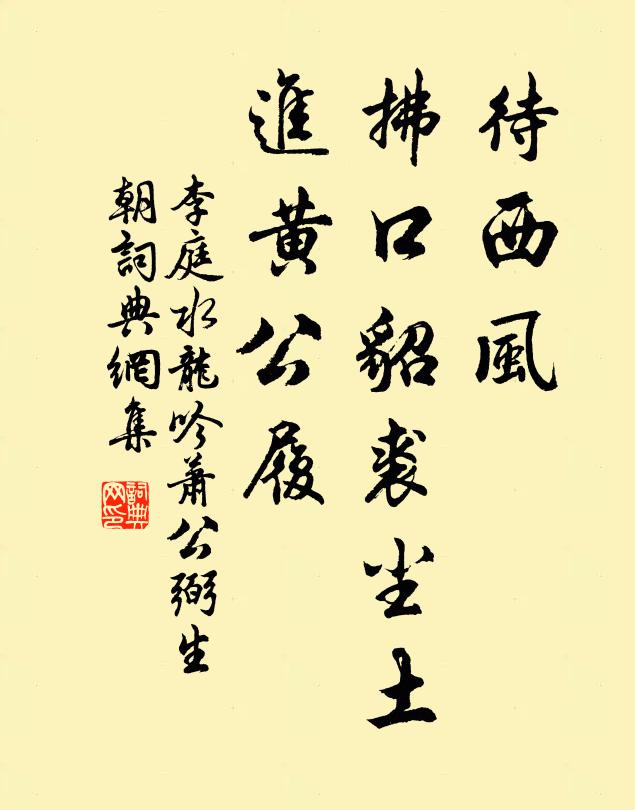 待西風
拂口貂裘尘土
進黄公履
李庭水龍吟蕭公弼生
朝詞典網集
詞典
网印